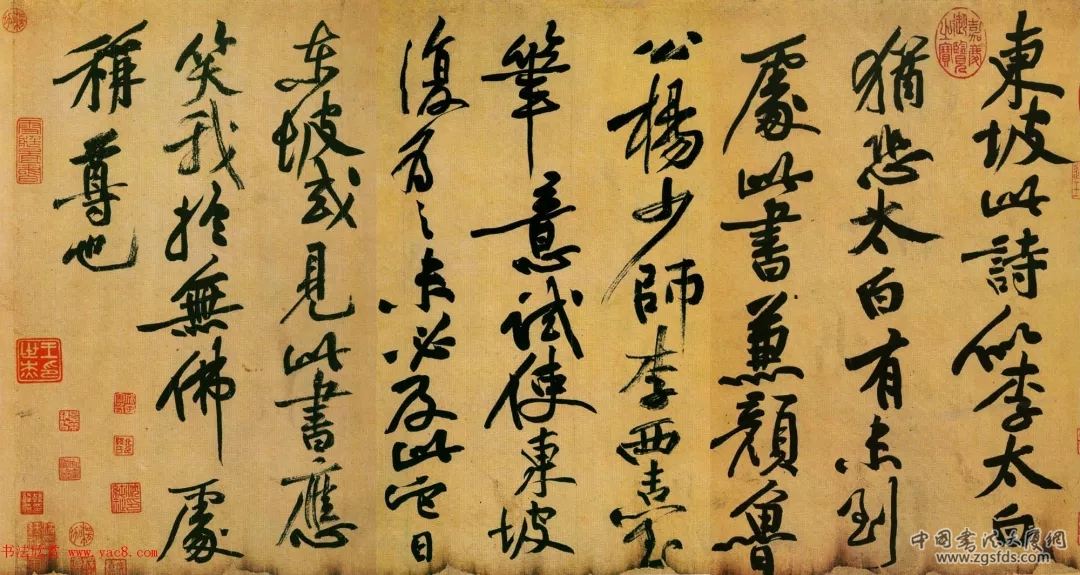 東坡此詩似李太白
猶恐太白有未到
處此書兼顏魯
公楊少師李西臺
筆意試使東坡
復為之未必及此它日
東坡或見此書應
笑我於無佛處
稱尊也
嘉慶御覽之寶
書法欣賞 www.yac8.com
中国书法
www.zgsfds.com